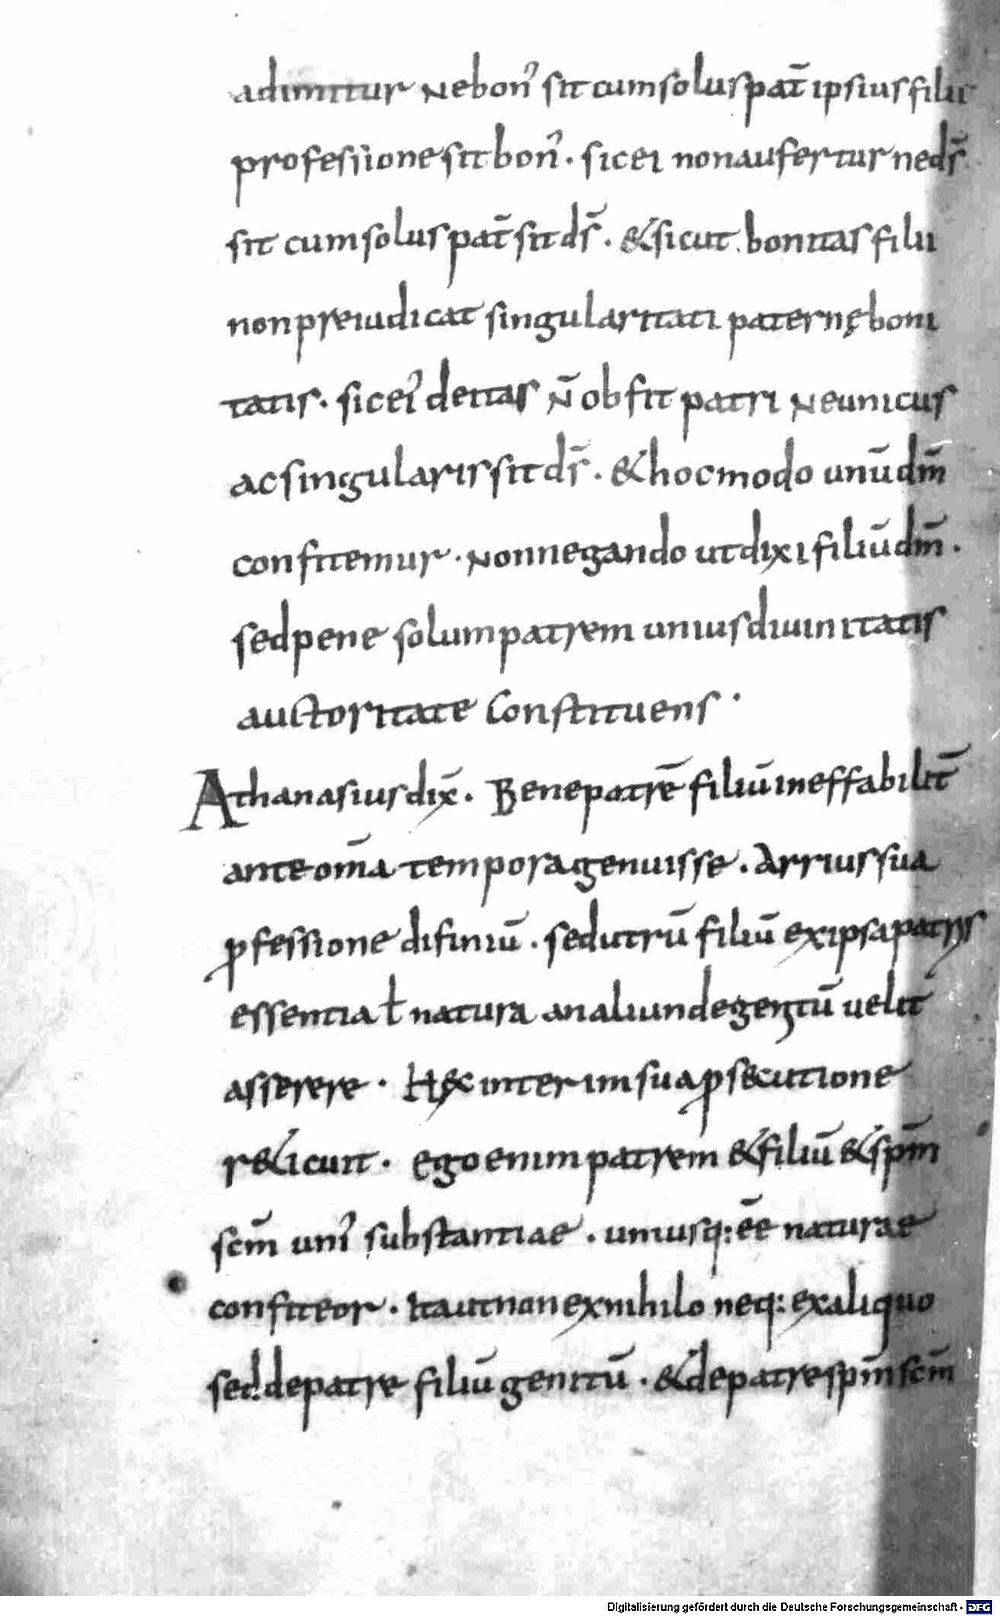 adimitur Nebon᾽ sit cum solus pat̄ ipsius filii
professione sit bon᾽. sic ei non aufertur ne ds̄
sit cum solus pat̄ sit ds̄. & sicut bonitas filii
non preiudicat singularitati paternę boni
tatis. sic ei᾽ deitas N̄ obsit patri Ne unicus
ac singularis sit ds̄. & hoc modo unū dm̄
confitemur. Non negando ut dixi filiū dm̄.
sed pene solum patrem unius diuinitatis
auctoritate Constituens.
Athanasius dix̄. Bene patrē filiū ineffabilit̄
ante om̄a tempora genuisse. Arrius sua
ꝓfessione difiniū. sed utrū filiū ex ipsa patris
essentia ł natura an aliunde genitū uelit
asserere. Hęc interim sua ꝓsecutione
r&icuit. Ego enim patrem & filiū & spm̄
scm̄ uni᾽ substantiae. uniusq: eē naturae
confiteor. Ita ut non ex nihilo neq: ex aliquo
sed de patre filiū genitū. & de patre spm̄ scm̄
Digitalisierung gefördert durch die Deutsche Forschungsgemeinschaft - DFG